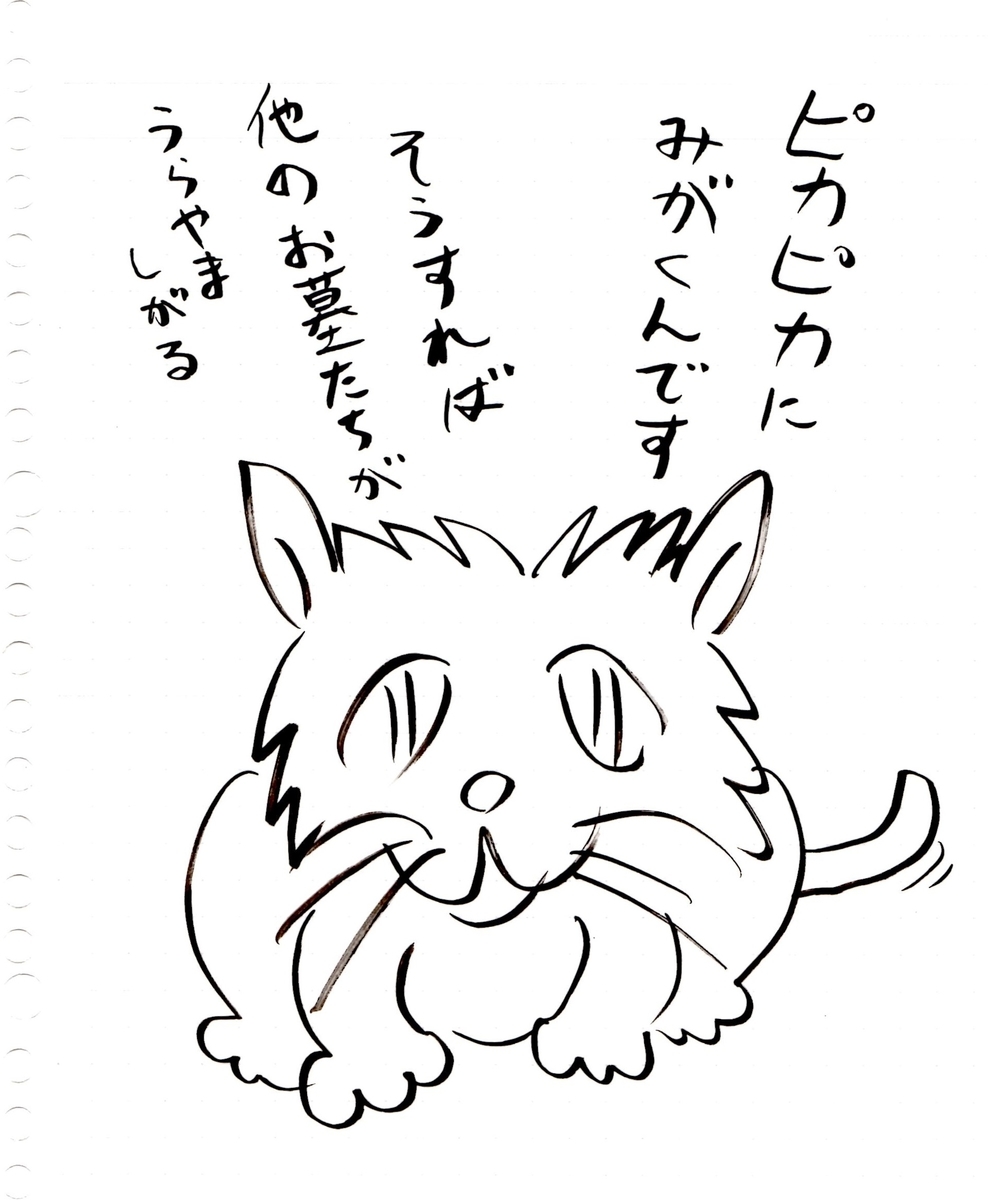 ピカピカに
みがくんです
そうすれば
他のお墓たちが
うらやま
しがる